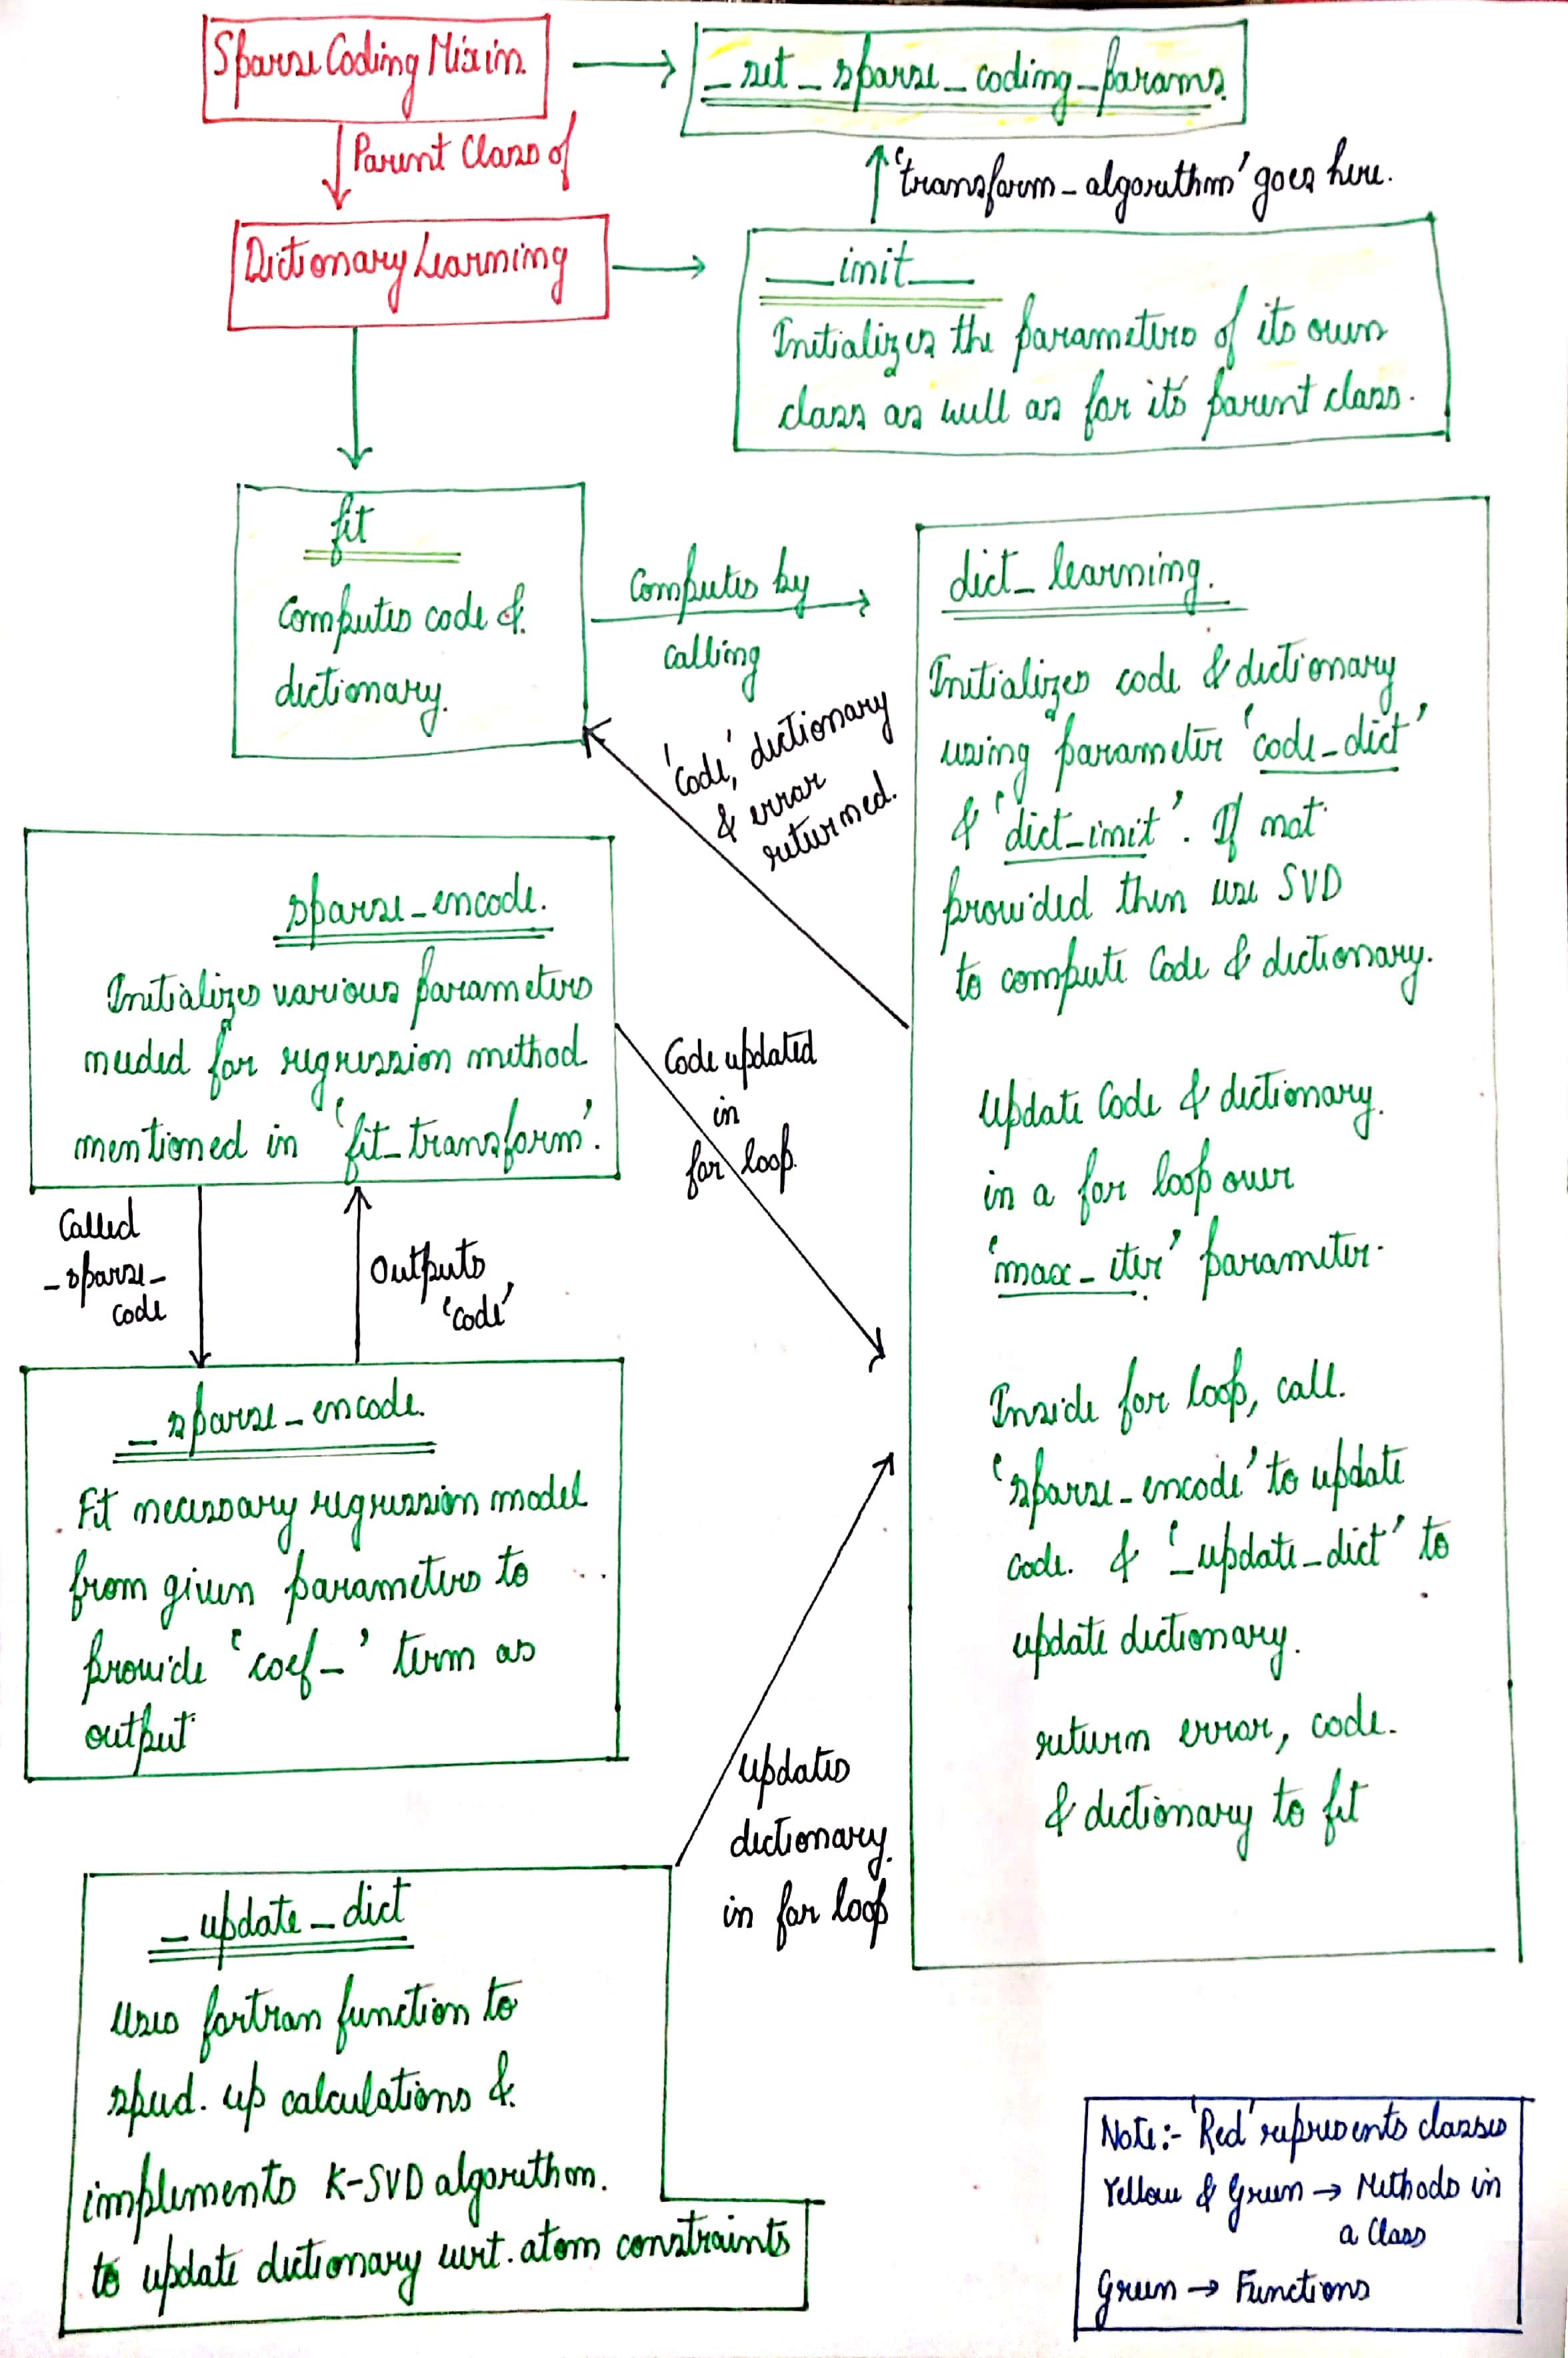 Sparse Coding Mixin.
_set_sparse_coding_params.
Parent Class of
'transform_algorithm' goes here.
Dictionary Learning
__init__
Initializes the parameters of its own
class as well as for its parent class.
fit
Computes code &
dictionary.
Computes by
calling
'code,' dictionary
& error
returned.
dict_learning.
Initializes code & dictionary
using parameter 'code_dict'
& 'dict_init'. If not
provided then use SVD
to compute Code & dictionary.
Update Code & dictionary.
in a for loop over
'max_iter' parameter.
Inside for loop, call.
'sparse_encode' to update
code. & '_update_dict' to
update dictionary.
return error, code.
& dictionary to fit
sparse_encode.
Initializes various parameters
needed for regression method
mentioned in 'fit_transform'.
Code updated
in
for loop.
Called
_sparse_
code
Outputs
'code'
_sparse_encode.
Fit necessary regression model
from given parameters to
provide 'coef_' term as
output
Updates
dictionary.
in for loop
_update_dict
Uses fortran function to
speed. up calculations &
implements K-SVD algorithm.
to update dictionary wrt. atom constraints
Note:- 'Red' represents classes
Yellow & Green → Methods in
a Class
Green → Functions